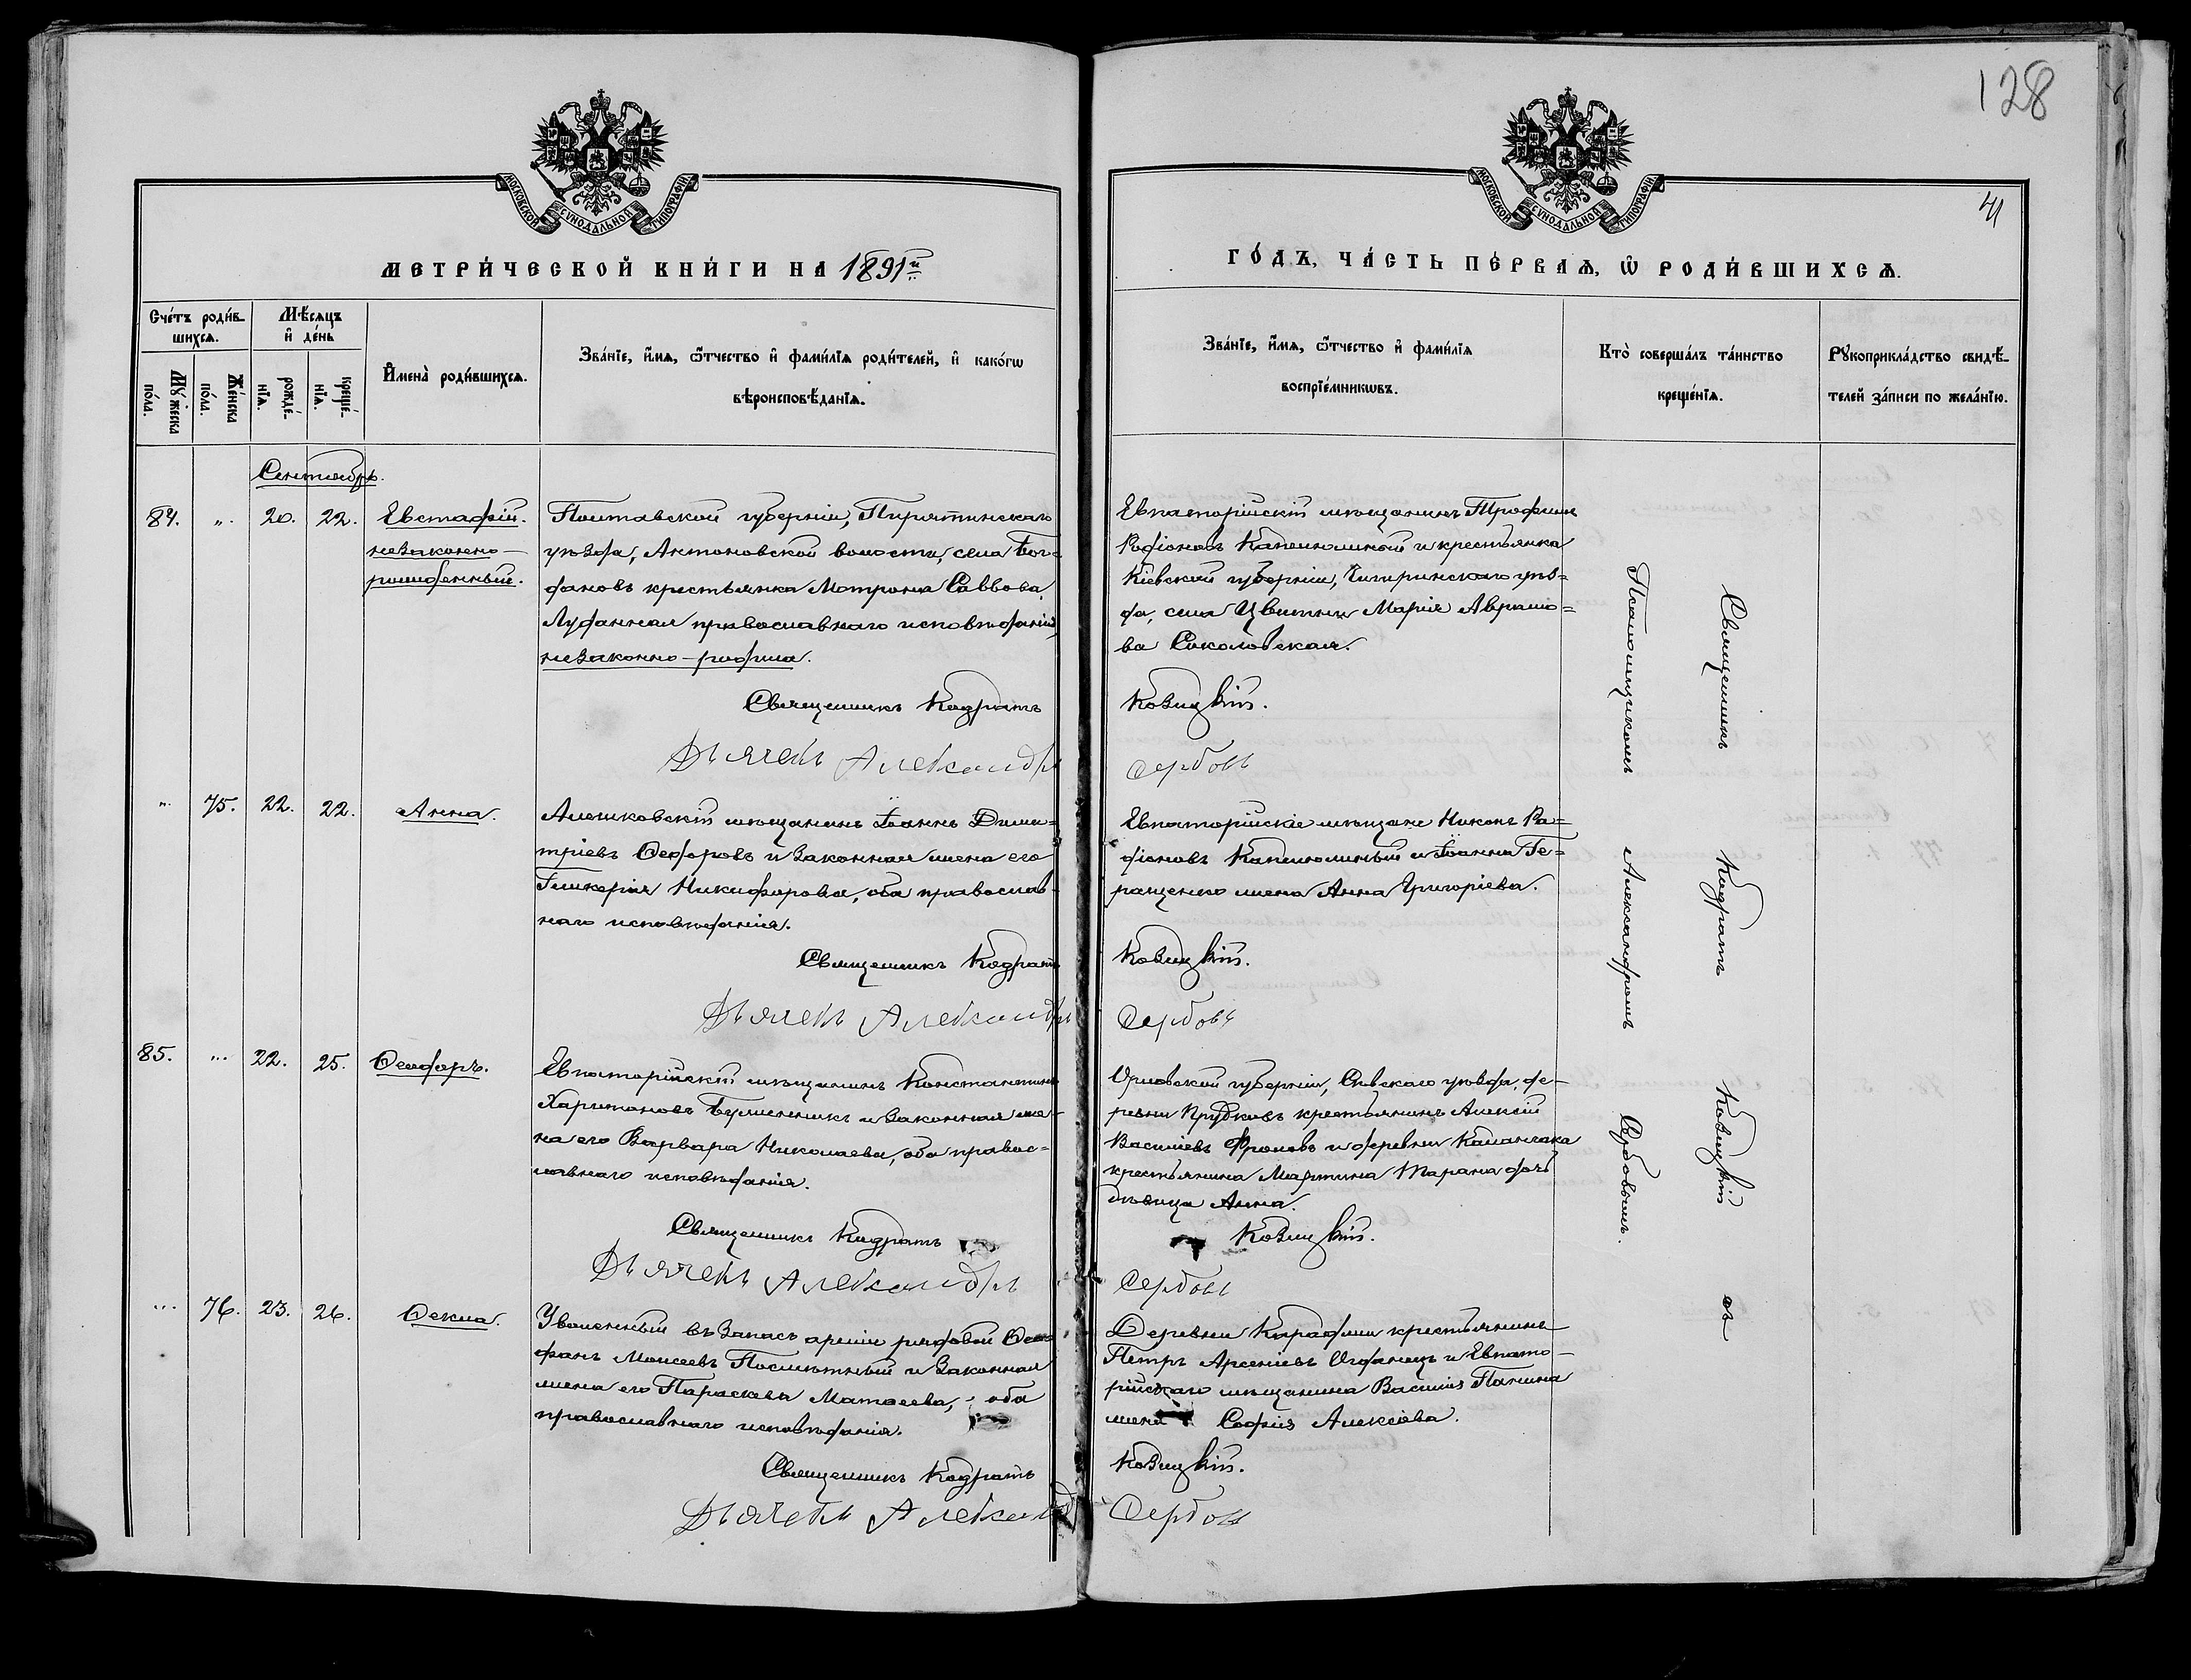 128
МОСКОВСКОЙ СѴНОДАЛЬНОЙ ТИПОГРАФІИ
МОСКОВСКОЙ СѴНОДАЛЬНОЙ ТИПОГРАФІИ
41
МЕТРИ́ЧЕСКОЙ КНИ́ГИ НА 1891й
ГО́ДЪ, ЧА́СТЬ ПЕ́РВАѦ, Ѡ҆ РОДИ́ВШИХСѦ.
Сче́тъ роди́в-
шихсѧ.
Мꙋ́жеска
по́ла.
Же́нска
по́ла.
Мѣ́сѧцъ
и҆ де́нь
рожде́-
нїѧ.
креще́-
нїѧ.
И҆мена̀ роди́вшихсѧ.
Зва́нїе, и҆́мѧ, ѻ҆́тчество и҆ фами́лїѧ роди́телей, и҆ како́гѡ
вѣроисповѣ́данїѧ.
Зва́нїе, и҆́мѧ, ѻ҆́тчество и҆ фами́лїѧ
воспрїе́мникѡвъ.
Кто̀ соверша́лъ та́инство
креще́нїѧ.
Рꙋкоприкла́дство свидѣ́-
телей за́писи по жела́нїю.
Сентябрь.
84. „. 20. 22. Евстафій.
незаконно-
рожденный.
Полтавской губерніи, Пирятинскаго
уѣзда, Антоновской волости, села Бог-
дановъ крестьянка Матрона Саввова
Луданная православнаго исповѣданія,
незаконно-родила.
Священникъ Кодратъ
Дьячекъ Александръ
Евпаторійскій мѣщанинъ Трофимъ
Родіоновъ и крестьянка
Кіевской губерніи, Чигиринскаго уѣз-
да, села Цвѣтны Марія Аврамо-
ва Соколовская.
Козицкій.
Сербовъ
„. 75. 22. 22. Анна.
Алешковскій мѣщанинъ Іоаннъ Дими-
тріевъ Ѳедоровъ и законная жена его
Гликерія Никифорова, оба православ-
наго исповѣданія.
Священникъ Кодратъ
Дьячекъ Александръ
Евпаторійскіе мѣщане Никонъ Ра-
діоновъ и Іоанна Ге-
ращенко жена Анна Григоріева.
Козицкій.
Сербовъ
85. „. 22. 25. Ѳеодоръ.
Евпаторійскій мѣщанинъ Константинъ
Харитоновъ и законная же-
на его Варвара Николаева, оба правос-
лавнаго исповѣданія.
Священникъ Кодратъ
Дьячекъ Александръ
Орловской губерніи, Сѣвскаго уѣзда, де-
ревни Прудковъ крестьянинъ Алексій
Василіевъ Фроловъ и деревни Каланчака
крестьянина Мартина Тарана дочь
дѣвица Анна.
Козицкій.
Сербовъ
„. 76. 23. 26. Ѳекла.
Уволенный въ запасъ арміи рядовой Ѳео-
фанъ Моисеевъ и законная
жена его Параскева Матѳеева, оба
православнаго исповѣданія.
Священникъ Кодратъ
Дьячекъ Александръ
Деревни крестьянинъ
Петръ Арсеніевъ и Евпато-
рійскаго мѣщанина Василія Панина
жена Софія Алексіева.
Козицкій.
Сербовъ
Священникъ Кодратъ Козицкій съ
Псаломщикомъ Александромъ Сербовымъ.